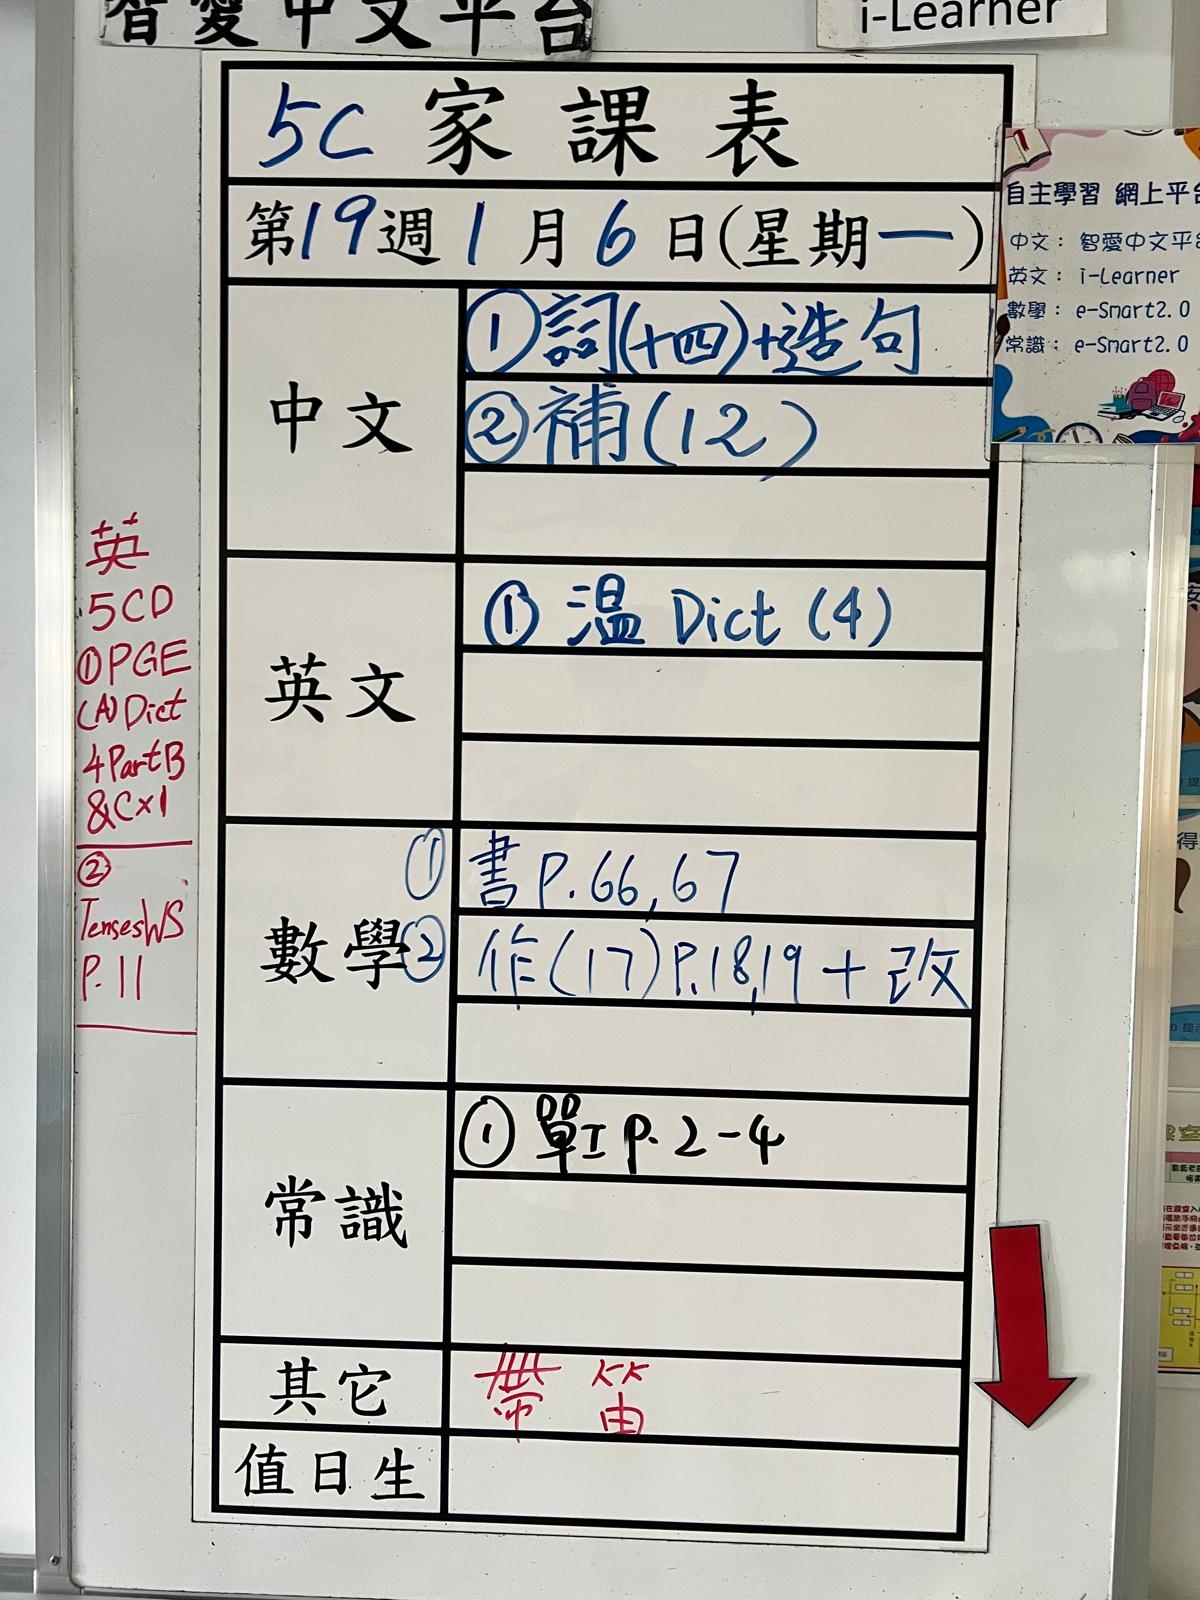 智愛中文平台
i-Learner
5C 家課表
第19週1月6日(星期一)
中文
①詞(十四)+造句
②補(12)
英文
① 溫 Dict (4)
數學
① 書 P.66,67
② 作(17)P.18,19 + 改
常識
① 單I P.2-4
其它
帶 笛
值日生
英
5CD
①PGE
(A)Dict
4PartB
&C×1
②
TensesWS
P.11
自主學習 網上平台
中文： 智愛中文平台
英文： i-Learner
數學： e-Smart2.0
常識： e-Smart2.0